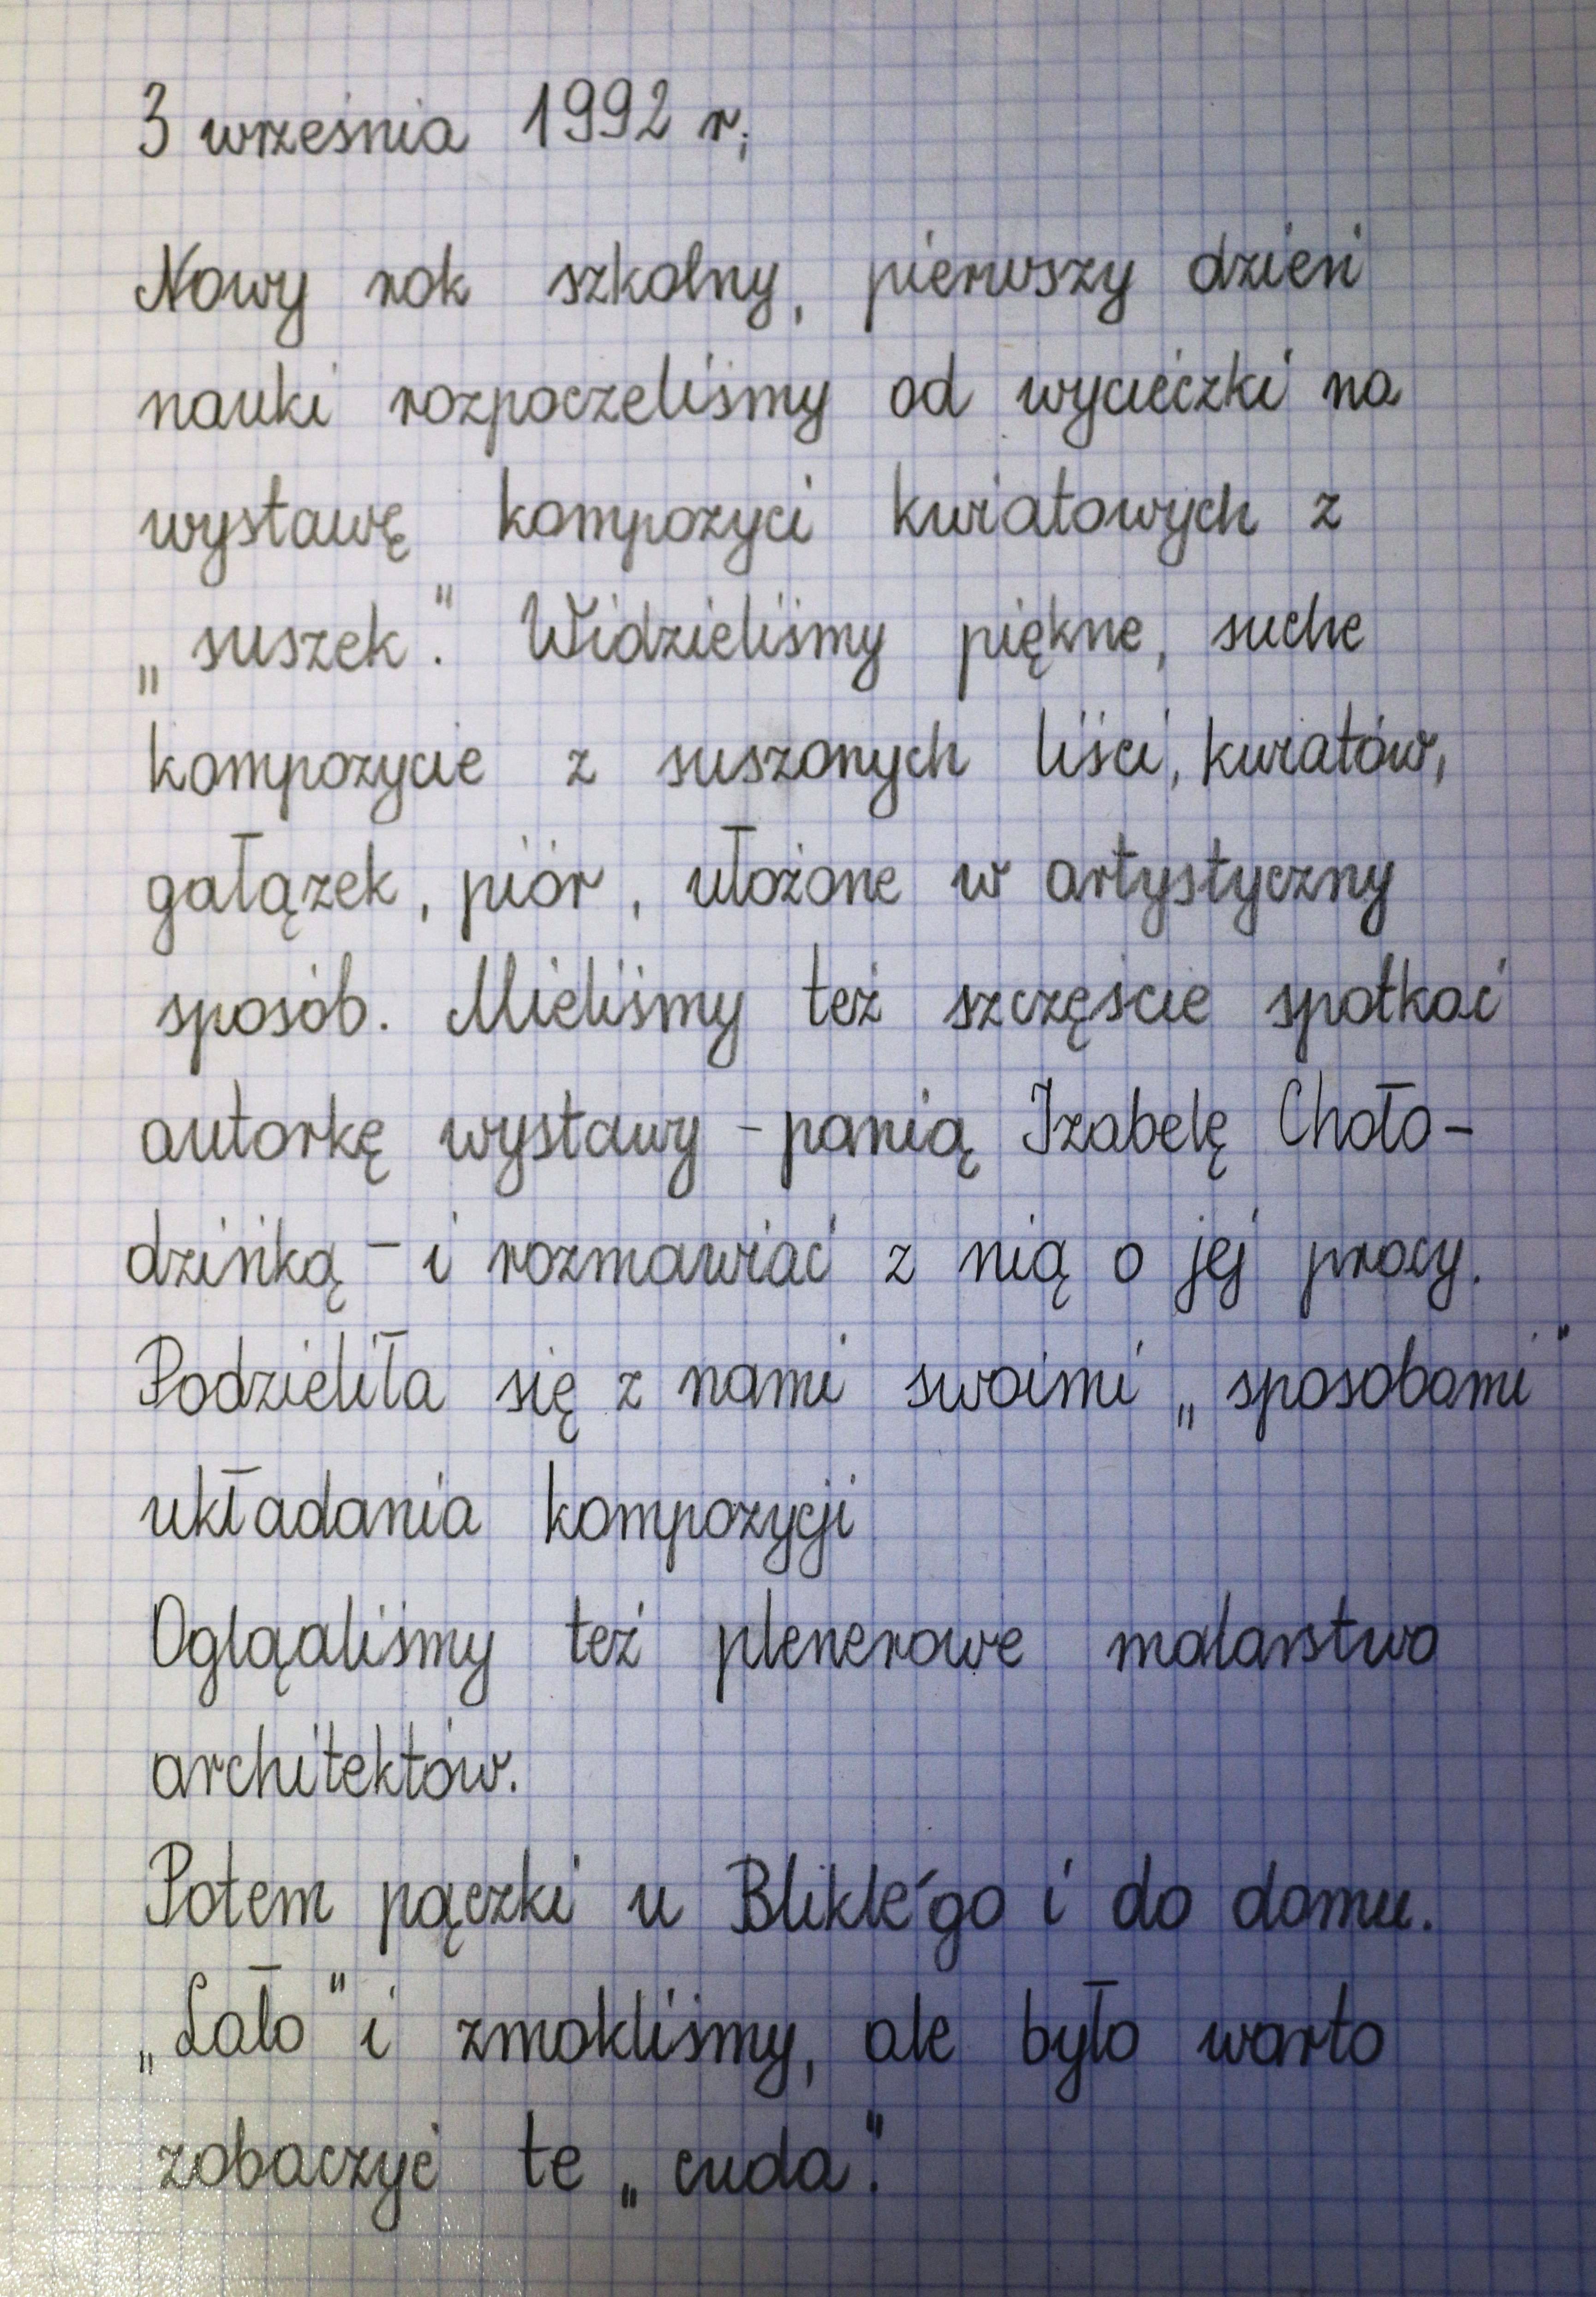 3 września 1992 r.
Nowy rok szkolny, pierwszy dzień
nauki rozpoczeliśmy od wycieczki na
wystawę kompozyci kwiatowych z
„suszek”. Widzieliśmy piękne, suche
kompozycie z suszonych liści, kwiatów,
gałązek, piór, ułożone w artystyczny
sposób. Mieliśmy też szczęście spotkać
autorkę wystawy - panią Izabelę Choło-
dzińką - i rozmawiać z nią o jej pracy.
Podzieliła się z nami swoimi „sposobami”
układania kompozycji
Oglądaliśmy też plenerowe malarstwo
architektów.
Potem pączki u Blikle'go i do domu.
„Lało” i zmokliśmy, ale było warto
zobaczyć te „cuda”.